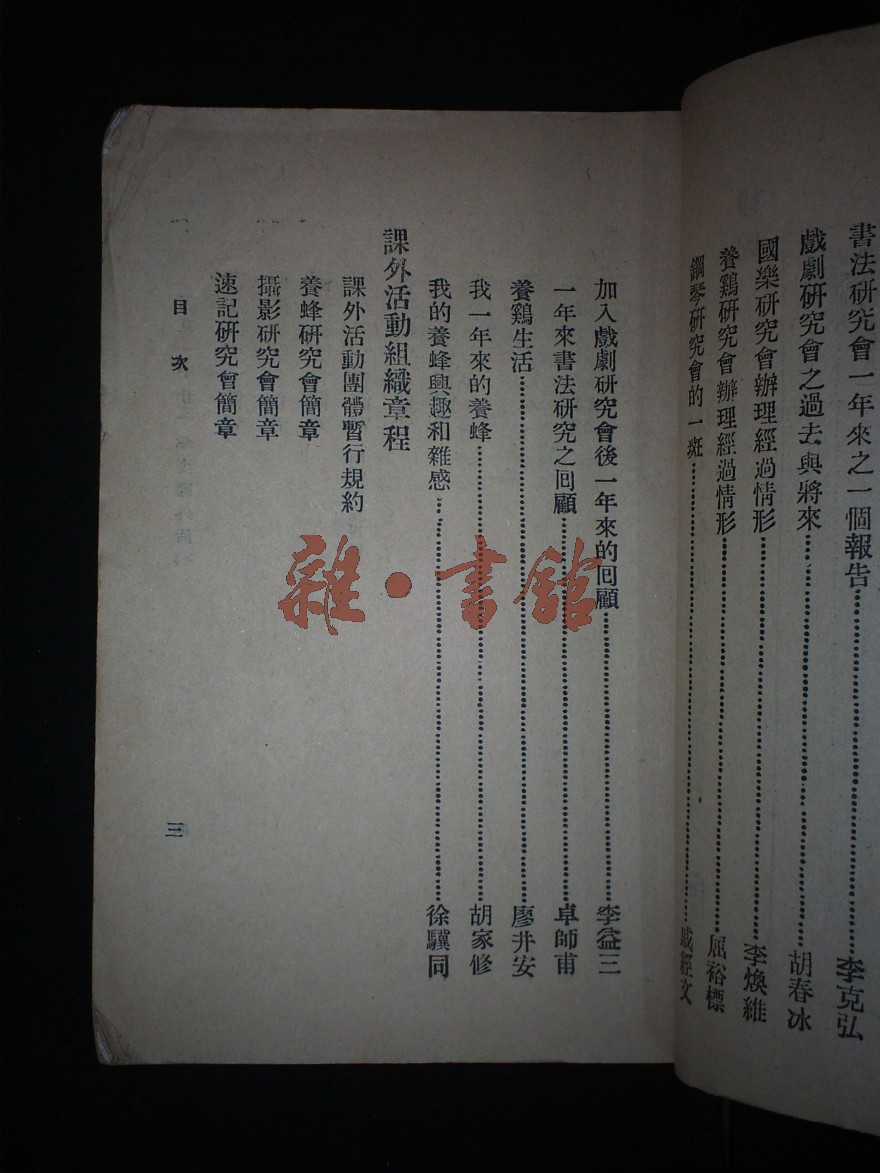 書法研究會一年來之一個報告……李克弘
戲劇研究會之過去與將來……胡春冰
國樂研究會辦理經過情形……李煥維
養鷄研究會辦理經過情形……屈裕標
鋼琴研究會的一斑……戚經文
加入戲劇研究會後一年來的回顧……李益三
一年來書法研究之回顧……卓師甫
養鷄生活……廖井安
我一年來的養蜂……胡家修
我的養蜂興趣和雜感……徐驥同
課外活動組織章程
課外活動團體暫行規約
養蜂研究會簡章
攝影研究會簡章
速記研究會簡章
目次
三
雜·書館